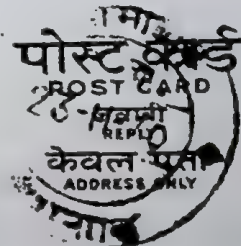 पोस्ट कार्ड
POST CARD
जवाबी
REPLY
केवल पता
ADDRESS ONLY